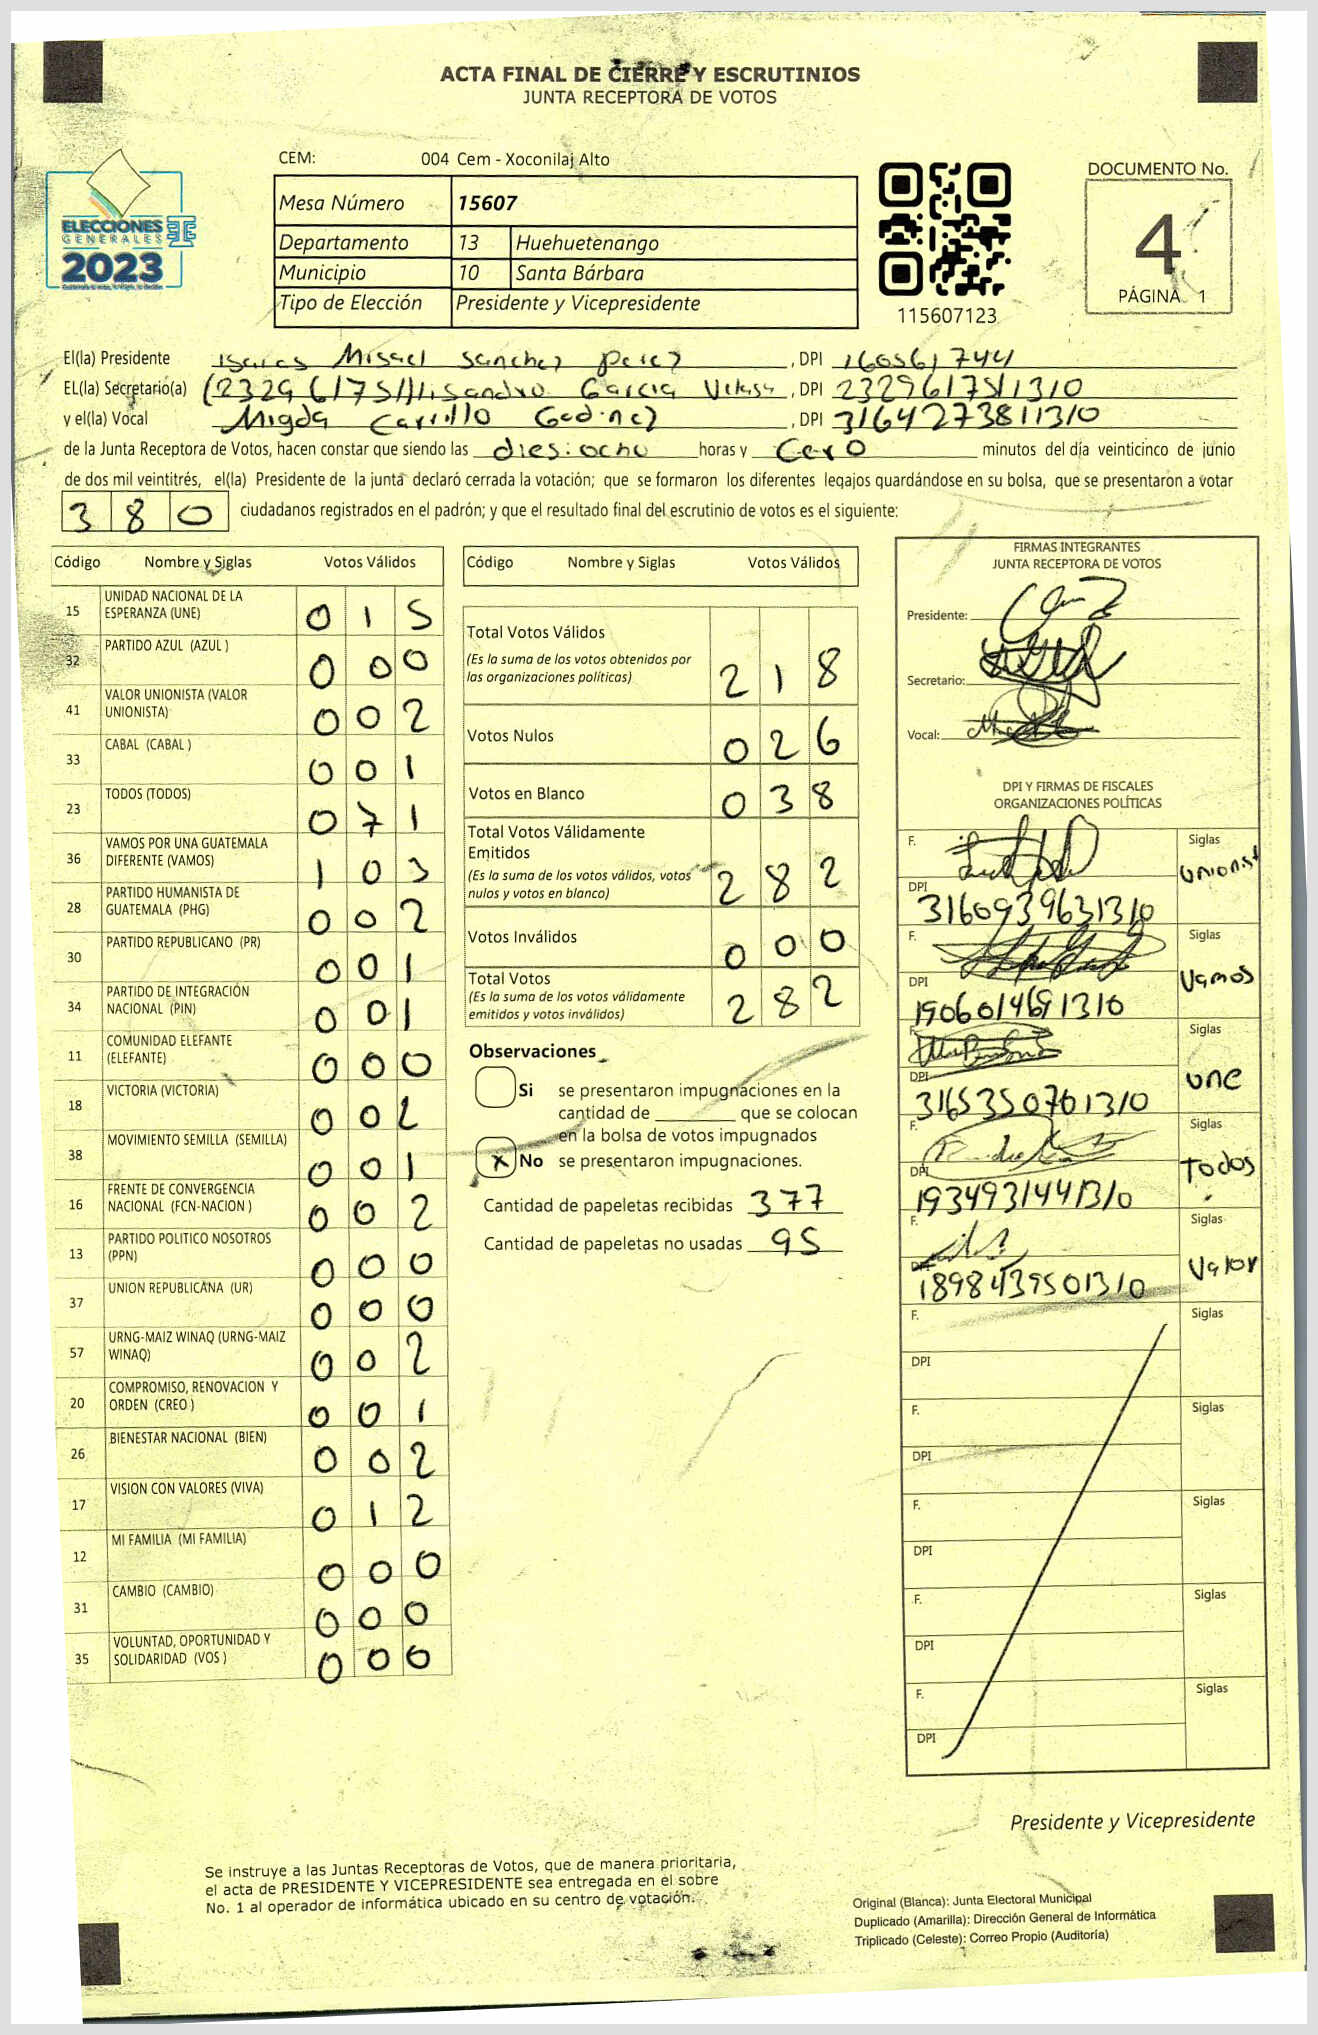 ACTA FINAL DE CIERRE Y ESCRUTINIOS
JUNTA RECEPTORA DE VOTOS
CEM: 004 Cem - Xoconilaj Alto
ELECCIONES
GENERALES
2023
Mesa Número 15607
Departamento 13 Huehuetenango
Municipio 10 Santa Bárbara
Tipo de Elección Presidente y Vicepresidente
115607123
DOCUMENTO No.
4
PÁGINA 1
El(la) Presidente Isaias Misael Sanchez perez , DPI 160561744
EL(la) Secretario(a) Lisandro Garcia , DPI 2329617511310
y el(la) Vocal Migda Carrillo Godinez , DPI 3164273811310
de la Junta Receptora de Votos, hacen constar que siendo las dies:ocho horas y Cero minutos del día veinticinco de junio
de dos mil veintitrés, el(la) Presidente de la junta declaró cerrada la votación; que se formaron los diferentes legajos guardándose en su bolsa, que se presentaron a votar
380 ciudadanos registrados en el padrón; y que el resultado final del escrutinio de votos es el siguiente:
Código Nombre y Siglas Votos Válidos
15 UNIDAD NACIONAL DE LA ESPERANZA (UNE) 015
32 PARTIDO AZUL (AZUL ) 000
41 VALOR UNIONISTA (VALOR UNIONISTA) 002
33 CABAL (CABAL ) 001
23 TODOS (TODOS) 071
36 VAMOS POR UNA GUATEMALA DIFERENTE (VAMOS) 103
28 PARTIDO HUMANISTA DE GUATEMALA (PHG) 002
30 PARTIDO REPUBLICANO (PR) 001
34 PARTIDO DE INTEGRACIÓN NACIONAL (PIN) 001
11 COMUNIDAD ELEFANTE (ELEFANTE) 000
18 VICTORIA (VICTORIA) 002
38 MOVIMIENTO SEMILLA (SEMILLA) 001
16 FRENTE DE CONVERGENCIA NACIONAL (FCN-NACION ) 002
13 PARTIDO POLITICO NOSOTROS (PPN) 000
37 UNION REPUBLICANA (UR) 000
57 URNG-MAIZ WINAQ (URNG-MAIZ WINAQ) 002
20 COMPROMISO, RENOVACION Y ORDEN (CREO ) 001
26 BIENESTAR NACIONAL (BIEN) 002
17 VISION CON VALORES (VIVA) 012
12 MI FAMILIA (MI FAMILIA) 000
31 CAMBIO (CAMBIO) 000
35 VOLUNTAD, OPORTUNIDAD Y SOLIDARIDAD (VOS ) 000
Código Nombre y Siglas Votos Válidos
Total Votos Válidos 218
(Es la suma de los votos obtenidos por
las organizaciones políticas)
Votos Nulos 026
Votos en Blanco 038
Total Votos Válidamente
Emitidos 282
(Es la suma de los votos válidos, votos
nulos y votos en blanco)
Votos Inválidos 000
Total Votos 282
(Es la suma de los votos válidamente
emitidos y votos inválidos)
Observaciones
Si se presentaron impugnaciones en la
cantidad de ________ que se colocan
en la bolsa de votos impugnados
X No se presentaron impugnaciones.
Cantidad de papeletas recibidas 377
Cantidad de papeletas no usadas 95
FIRMAS INTEGRANTES
JUNTA RECEPTORA DE VOTOS
Presidente:
Secretario:
Vocal:
DPI Y FIRMAS DE FISCALES
ORGANIZACIONES POLÍTICAS
F. Siglas Unionist
DPI 3160939631310
F. Siglas Vamos
DPI 1906014691310
F. Siglas une
DPI 3165350701310
F. Siglas Todos
DPI 1934931441310
F. Siglas Valor
DPI 1898439501310
F. Siglas
DPI
F. Siglas
DPI
F. Siglas
DPI
F. Siglas
DPI
F. Siglas
DPI
Presidente y Vicepresidente
Se instruye a las Juntas Receptoras de Votos, que de manera prioritaria,
el acta de PRESIDENTE Y VICEPRESIDENTE sea entregada en el sobre
No. 1 al operador de informática ubicado en su centro de votación.
Original (Blanca): Junta Electoral Municipal
Duplicado (Amarilla): Dirección General de Informática
Triplicado (Celeste): Correo Propio (Auditoría)